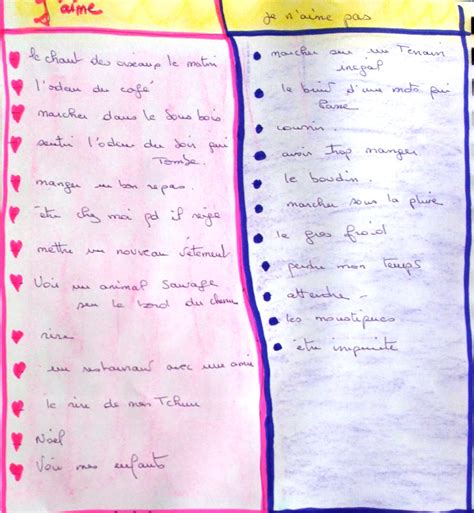 J'aime
le chant des oiseaux le matin
l'odeur du café
marcher dans le sous bois
sentir l'odeur du soir qui
Tombe.
manger un bon repas.
être chez moi pd il neige
mettre un nouveau vêtement
Voir un animal sauvage
sur le bord du chemin
rire
un restaurant avec une amie
le rire de mes
Noël
Voir mes enfants
je n'aime pas
marcher sur un Terrain
inégal
le bruit d'une moto qui
passe
courir.
avoir trop manger
le boudin.
marcher sous la pluie
le gros froid
perdre mon temps
attendre
les moustiques
être inquiète